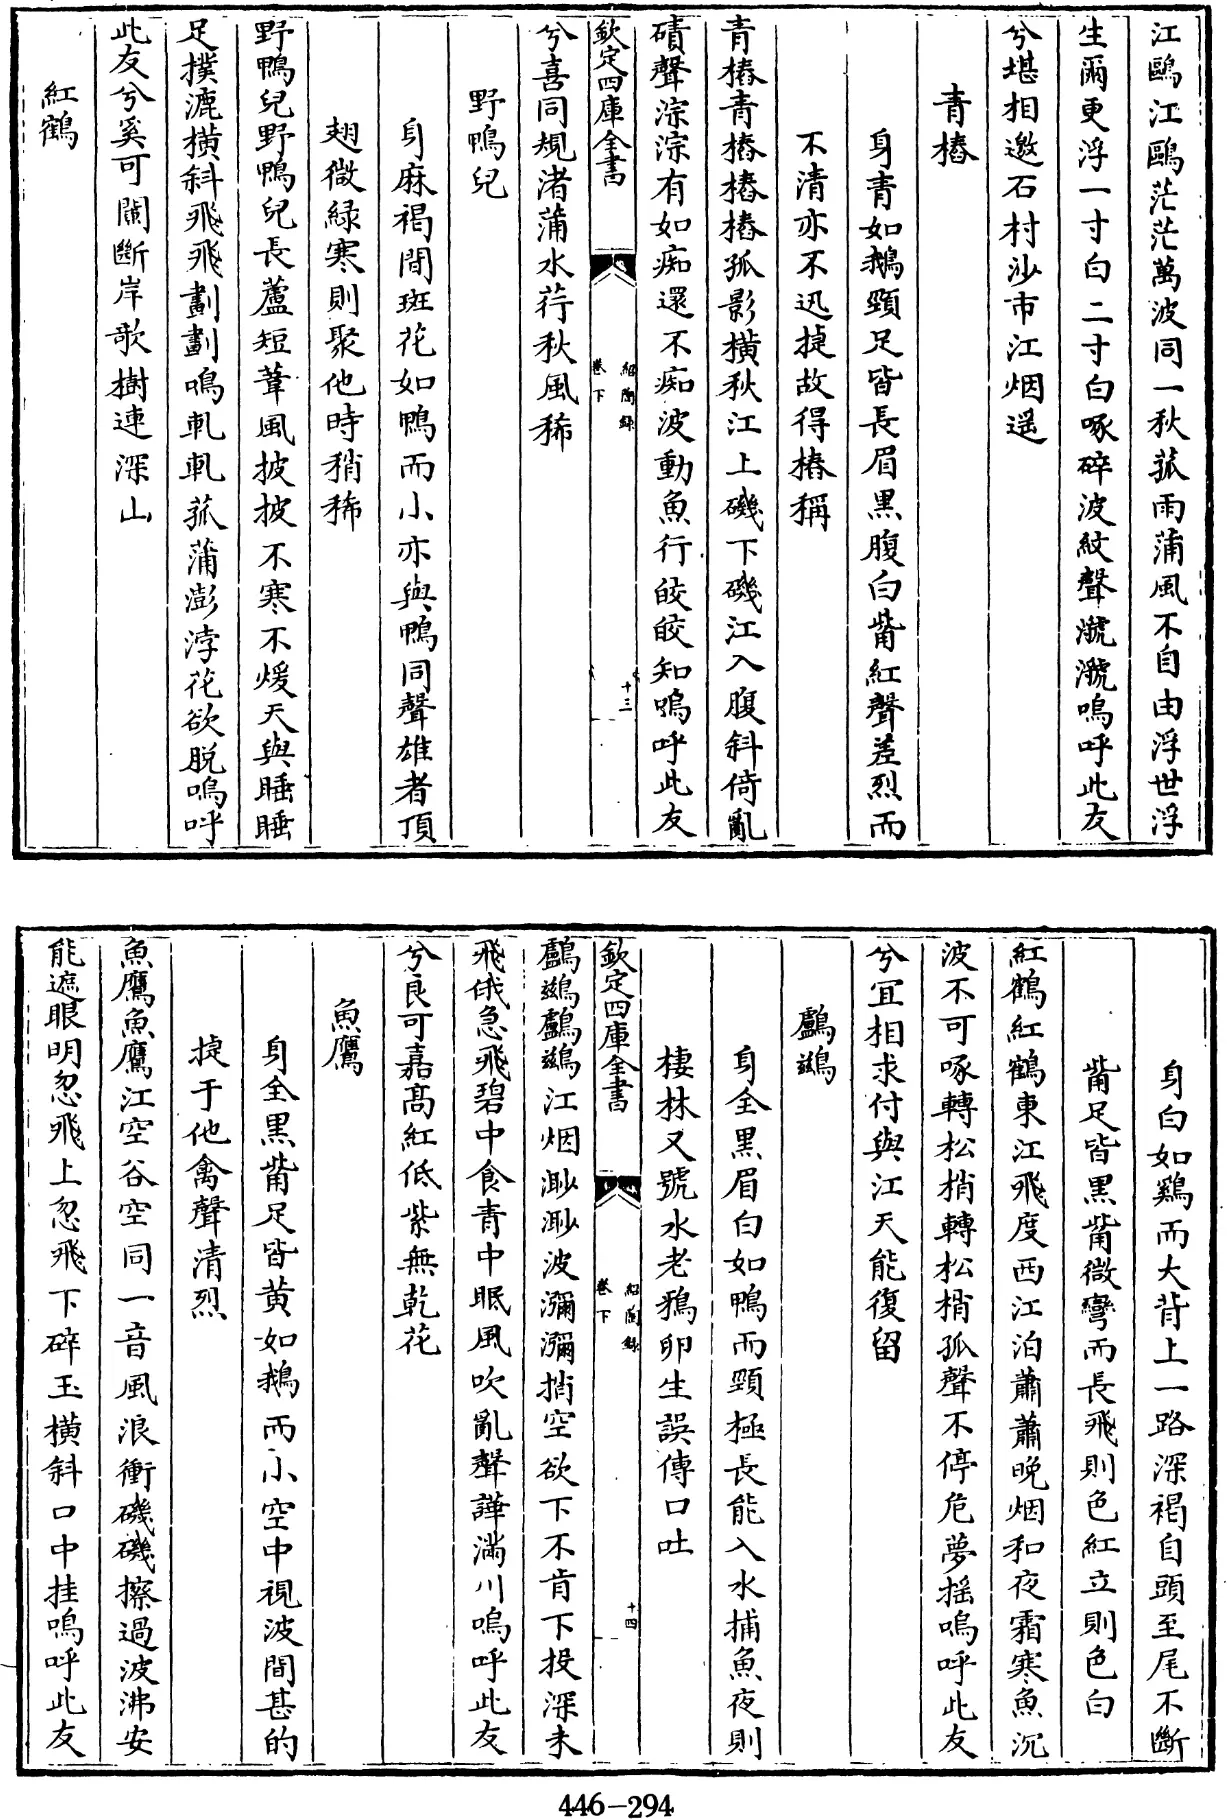 江鷗江鷗茫茫萬波同一秋菰雨蒲風不自由浮世浮
生爾更浮一寸白二寸白啄碎波紋聲㶁㶁嗚呼此友
兮堪相邀石村沙市江烟遥
青樁
身青如鵝頸足皆長眉黑腹白觜紅聲差烈而
不清亦不迅捷故得樁稱
青樁青樁樁樁孤影橫秋江上磯下磯江入腹斜倚亂
磧聲淙淙有如痴還不痴波動魚行皎皎知嗚呼此友
欽定四庫全書
紹陶録
卷下
十三
兮喜同規渚蒲水荇秋風稀
野鴨兒
身麻褐間斑花如鴨而小亦與鴨同聲雄者頂
翅微緑寒則聚他時稍稀
野鴨兒野鴨兒長蘆短葦風披披不寒不煖天與睡睡
足撲漉橫斜飛飛劃劃鳴軋軋菰蒲澎浡花欲脱嗚呼
此友兮奚可闌斷岸歌樹連深山
紅鶴
身白如鷄而大背上一路深褐自頭至尾不斷
觜足皆黑觜微彎而長飛則色紅立則色白
紅鶴紅鶴東江飛度西江泊蕭蕭晚烟和夜霜寒魚沉
波不可啄轉松梢轉松梢孤聲不停危夢摇嗚呼此友
兮宜相求付與江天能復留
鸕鷀
身全黑眉白如鴨而頸極長能入水捕魚夜則
棲林又號水老鴉卵生誤傳口吐
欽定四庫全書
紹陶録
卷下
十四
鸕鷀鸕鷀江烟渺渺波瀰瀰捎空欲下不肯下投深未
飛俄急飛碧中食青中眠風吹亂聲譁滿川嗚呼此友
兮良可嘉髙紅低紫無乾花
魚鷹
身全黑觜足皆黄如鵝而小空中視波間甚的
捷于他禽聲清烈
魚鷹魚鷹江空谷空同一音風浪衝磯磯擦過波沸安
能遮眼明忽飛上忽飛下碎玉橫斜口中挂嗚呼此友
446-294